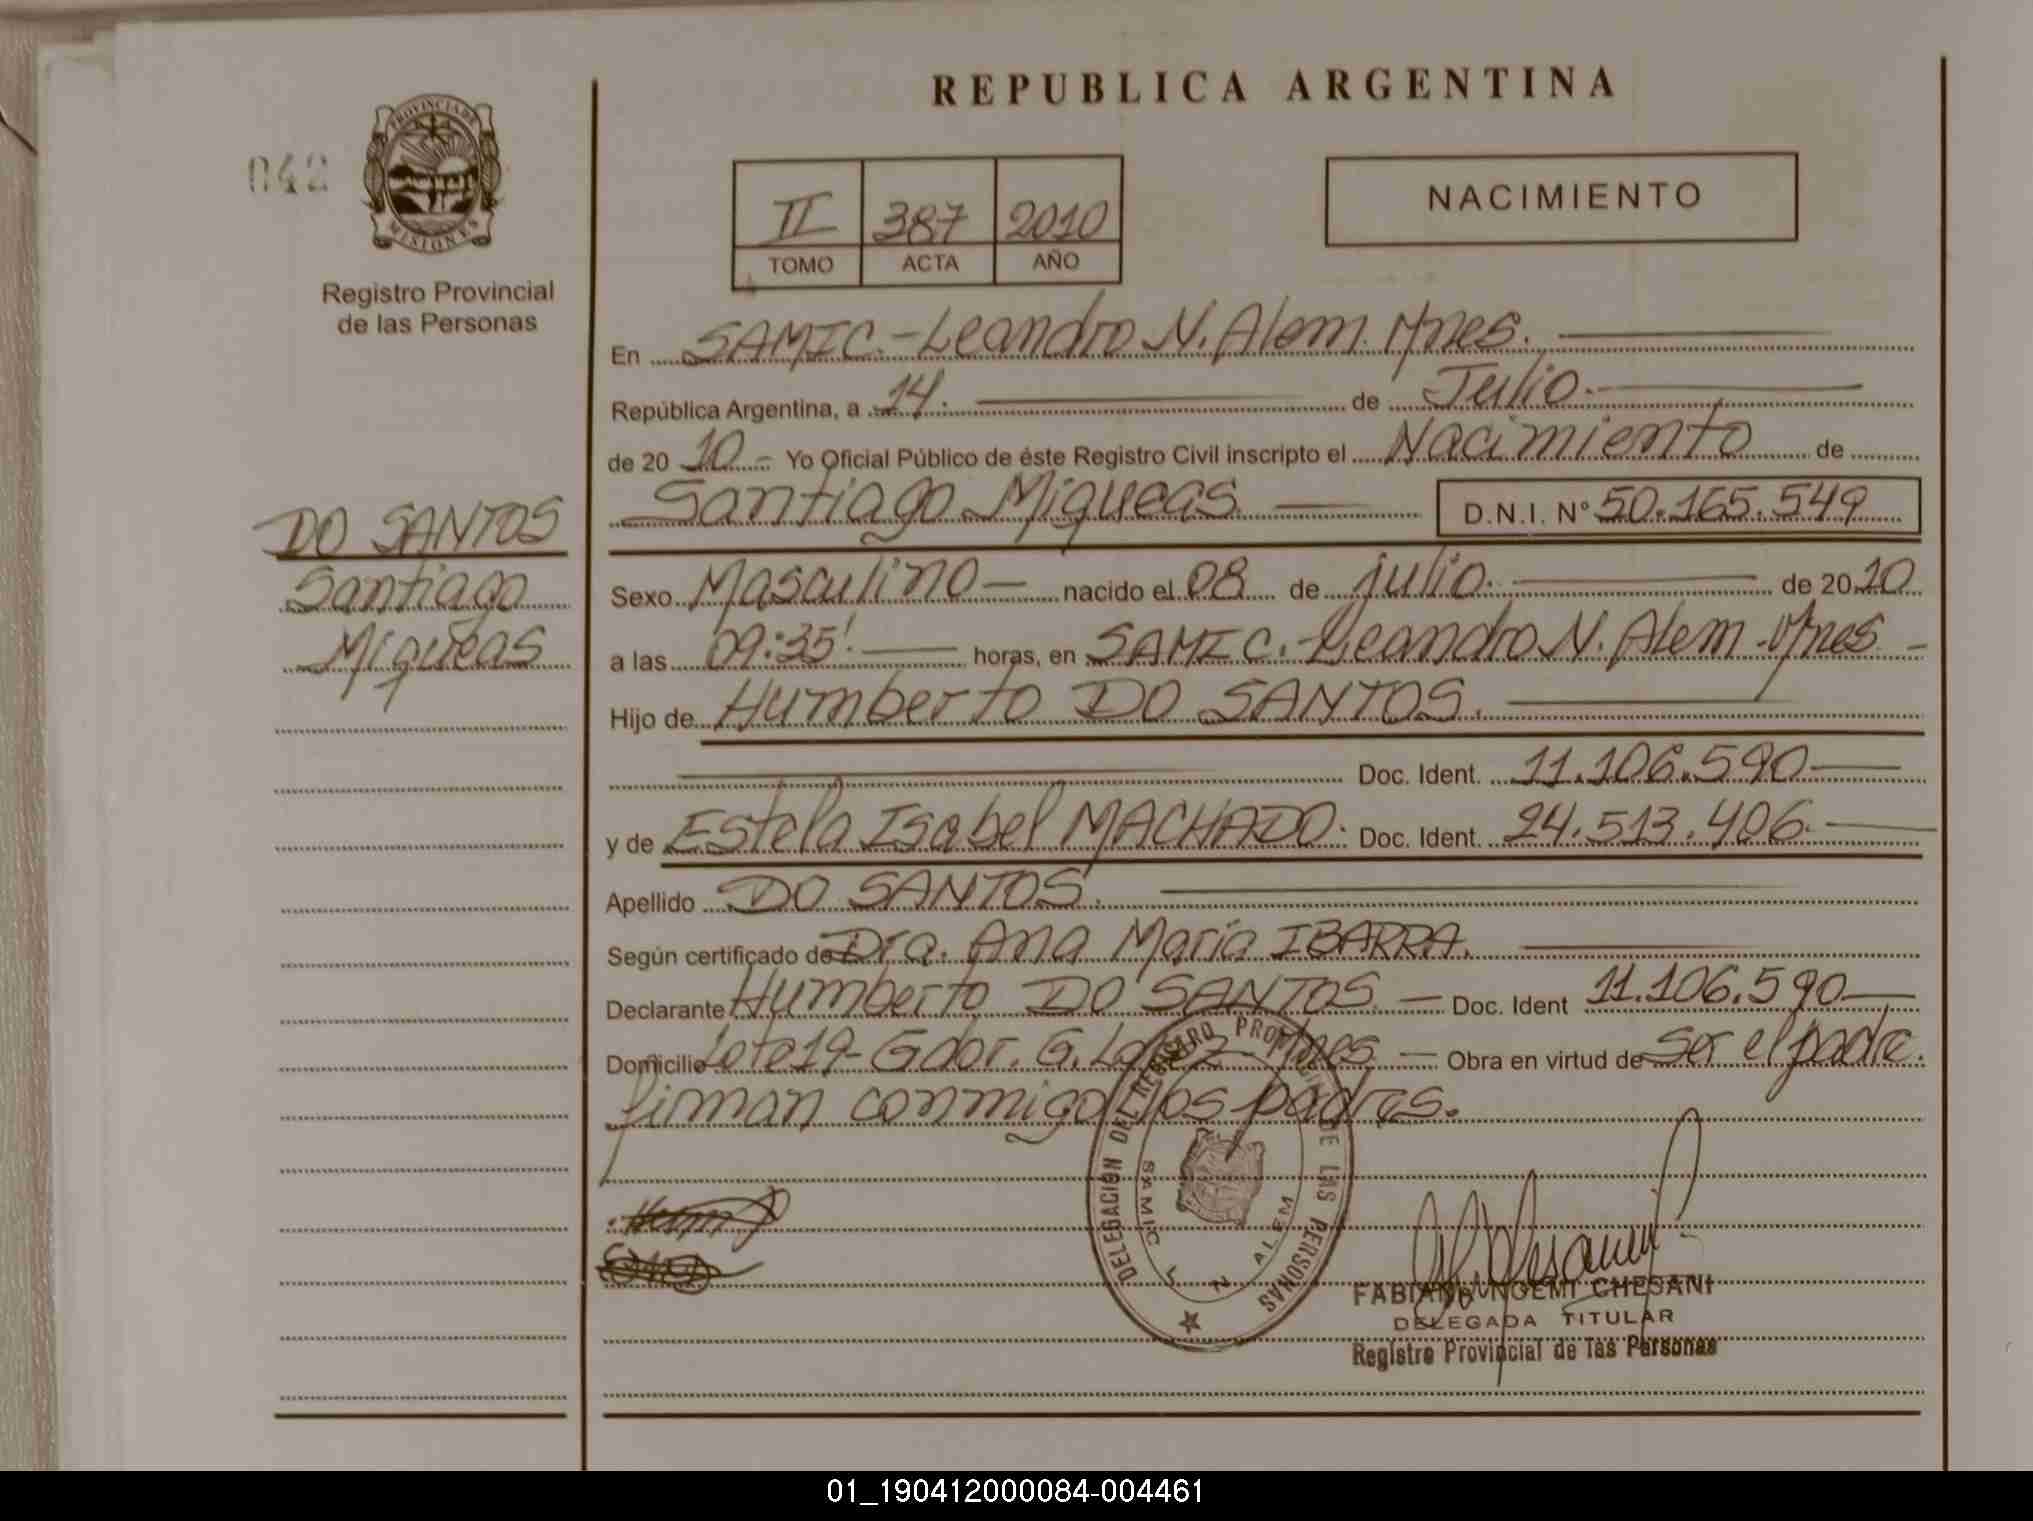 REPUBLICA ARGENTINA
042
PROVINCIA DE
MISIONES
Registro Provincial
de las Personas
II 387 2010
TOMO ACTA AÑO
NACIMIENTO
En SAMIC.-Leandro N. Alem. Mnes.
República Argentina, a 14. de Julio.
de 2010 - Yo Oficial Público de éste Registro Civil inscripto el Nacimiento de
Santiago Miqueas D.N.I. N° 50.165.549
DO SANTOS
Santiago
Miqueas
Sexo Masculino nacido el 08 de julio. de 2010
a las 09:35' horas, en SAMIC.-Leandro N. Alem-Mnes
Hijo de Humberto DO SANTOS.
Doc. Ident. 11.106.590
y de Estela Isabel MACHADO. Doc. Ident. 24.513.406.
Apellido DO SANTOS.
Según certificado de Dra. Ana Maria IBARRA.
Declarante Humberto DO SANTOS. Doc. Ident 11.106.590
Domicilio Lote 19- Gdor. G. Mnes Obra en virtud de ser el padre.
firman conmigo los padres.
DELEGACION DEL REGISTRO PROVINCIAL DE LAS PERSONAS
SAMIC L N ALEM
FABIANA NOEMI CHESANI
DELEGADA TITULAR
Registro Provincial de las Personas
01_190412000084-004461